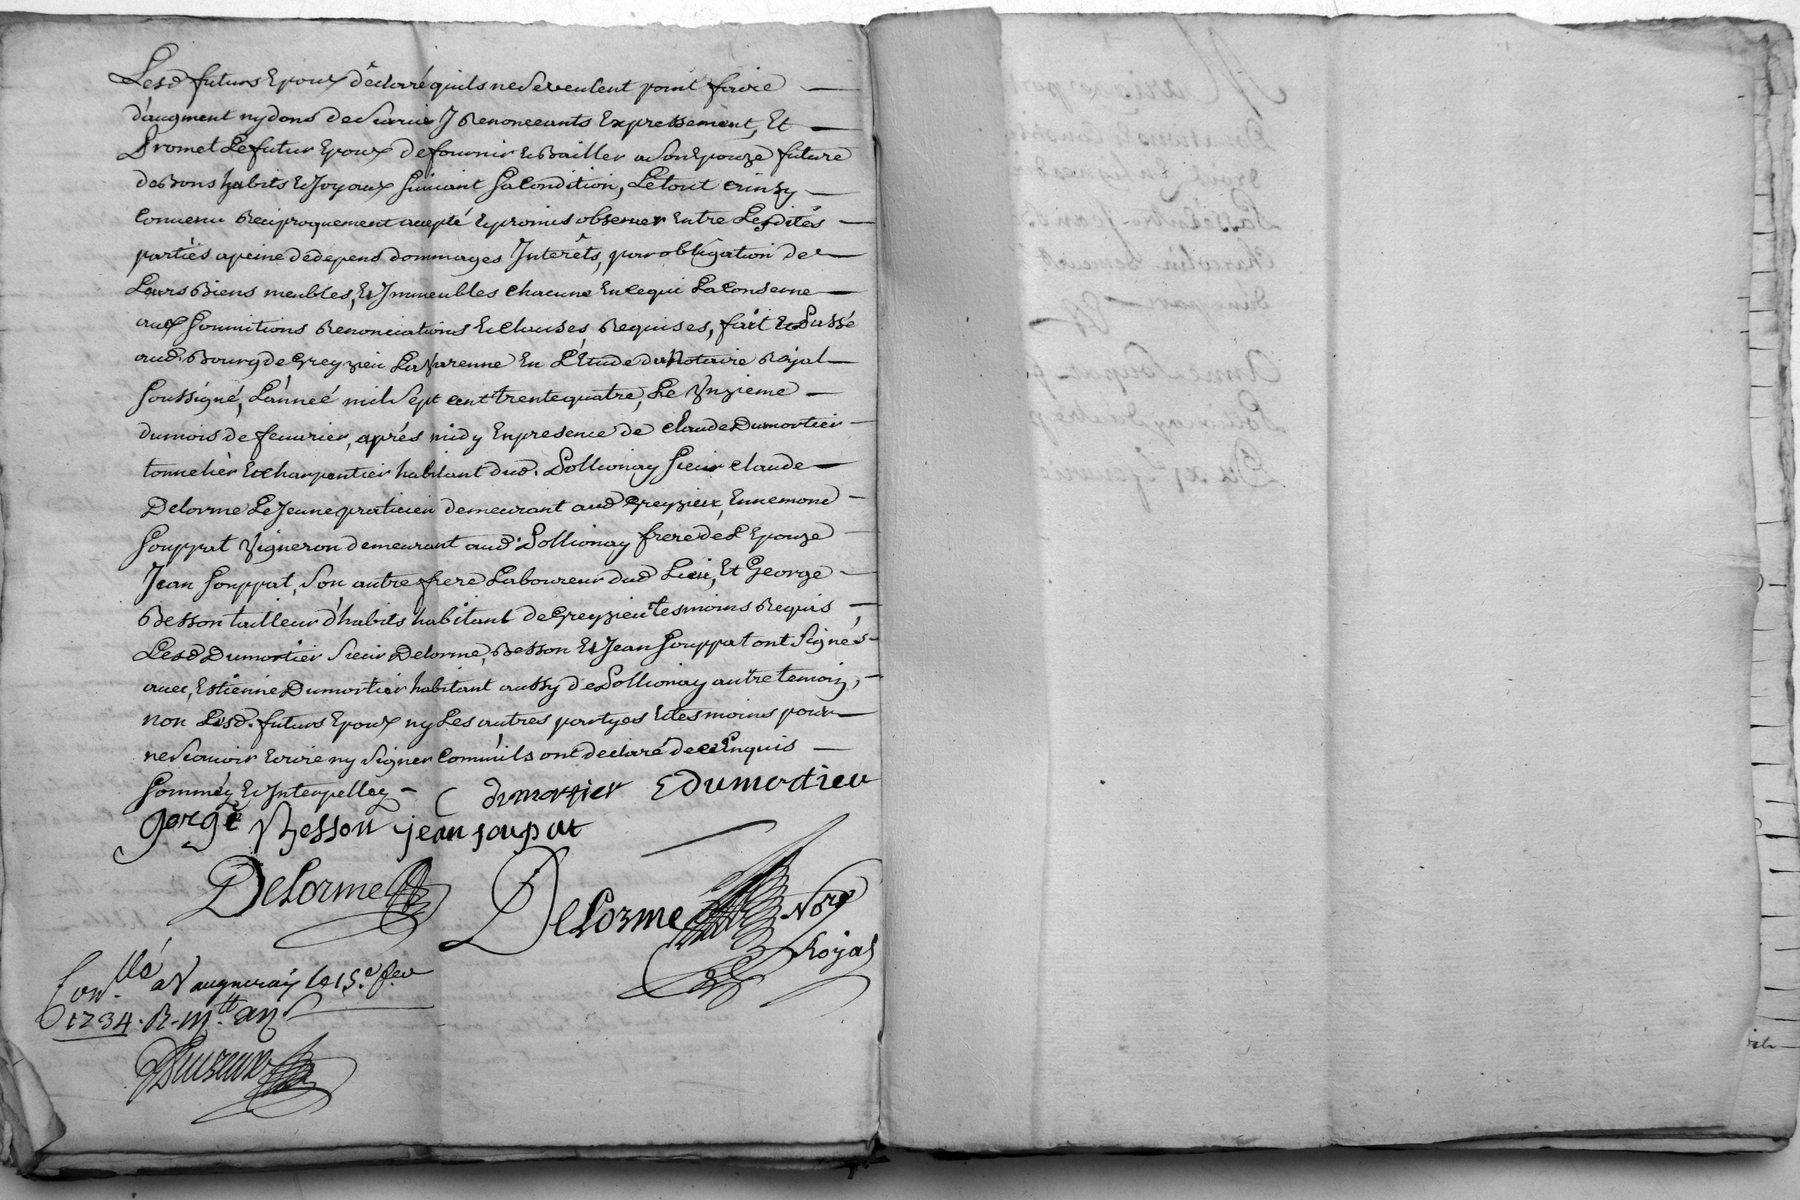 Lesd. futurs Epoux déclaré quils ne se veulent point faire
d'augment ny dons de survie J Renonceants Expressement, Et
Promet Le futur Epoux de fournir Et Bailler a son Epouze future
de Bons habits Et Joyaux suivant sa Condition, Le tout Ainsy
Convenu Reciproquement accepté Et promis observer Entre Lesdites
parties a peine de depens dommages Interêts, par obligation de
Leurs Biens meubles, Et Immeubles chacune En ce qui La Conserne
aux soumitions Renonciations Et clauses Requises, fait Et Passé
aud. Bourg de Greyzieu La Varenne En L'Etude du Notaire Royal
soussigné, L'année mil sept cent trente quatre, Le Unzieme
du mois de fevurier, aprés midy En presence de claude Dumortier
tonnelier Et charpentier habitant dud. Pollionay sieur claude
Delorme Le Jeune praticien demeurant aud Greyzieu, Ennemond
souppat Vigneron demeurant aud. Pollionay frere de L'Epouze
Jean souppat, son autre frere Laboureur dud Lieu, Et George
Besson tailleur d'habits habitant de Greyzieu tesmoins Requis,
Lesd Dumortier sieur Delorme, Besson Et Jean souppat ont signés
avec Estienne Dumortier habitant aussy de Pollionay autre temoin,
non Lesd. futurs Epoux ny Les autres partyes Et tesmoins pour
ne scavoir Ecrire ny signer Comm'ils ont declaré de ce Enquis
sommés Et Interpellez
C dumortier E dumortieu
gorge Besson jean soupat
Delorme
DeLorme Nore
Royal
Con.llé a Vaugneray le 15e fev
1734. R.